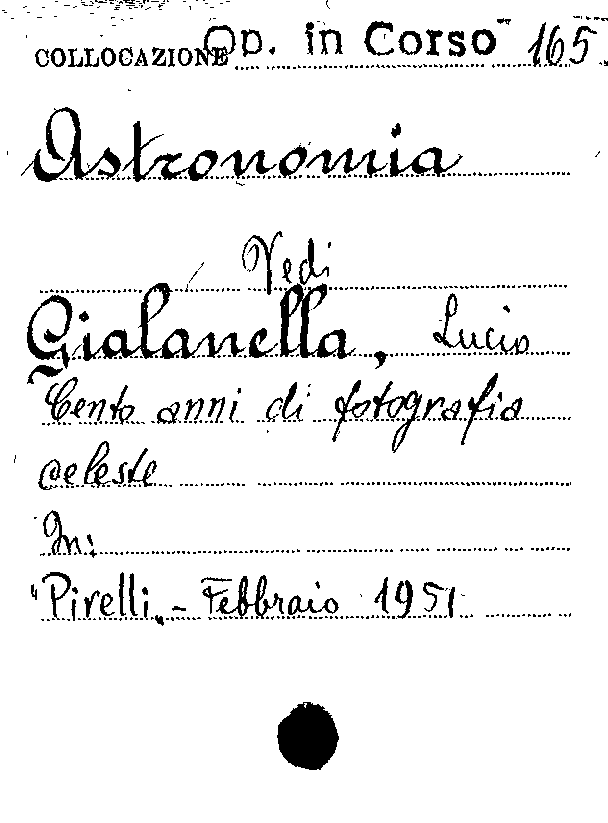 COLLOCAZIONE Op. in Corso 165
Astronomia
Vedi
Gialanella, Lucio
Cento anni di fotografia
celeste
In:
"Pirelli„ - Febbraio 1951